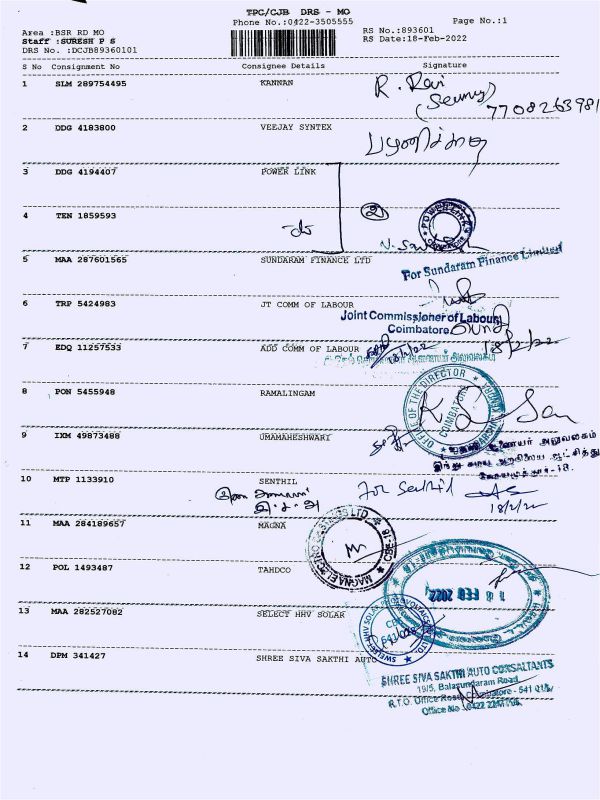 TPC/CJB DRS - MO
Phone No.:0422-3505555
Page No.:1
Area :BSR RD MO
Staff :SURESH P S
DRS No. :DCJB89360101
RS No.:893601
RS Date:18-Feb-2022
S No Consignment No Consignee Details Signature
1 SLM 289754495 KANNAN
R. Ravi
7708263981
2 DDG 4183800 VEEJAY SYNTEX
3 DDG 4194407 POWER LINK
4 TEN 1859593
5 MAA 287601565 SUNDARAM FINANCE LTD
For Sundaram Finance Limited
6 TRP 5424983 JT COMM OF LABOUR
Joint Commissioner of Labour
Coimbatore
7 EDQ 11257533 ADD COMM OF LABOUR
18/2/22
8 PON 5455948 RAMALINGAM
OFFICE OF THE DIRECTOR
COIMBATORE
9 IXM 49873488 UMAMAHESHWARI
10 MTP 1133910 SENTHIL
for Senthil
18/2/22
11 MAA 284189657 MAGNA
12 POL 1493487 TAHDCO
18 FEB 2022
13 MAA 282527082 SELECT HHV SOLAR
14 DPM 341427 SHREE SIVA SAKTHI AUTO
SHREE SIVA SAKTHI AUTO CONSALTANTS
19/5, Balasundaram Road
R.T.O. Office Road, Coimbatore - 641 018
Office No